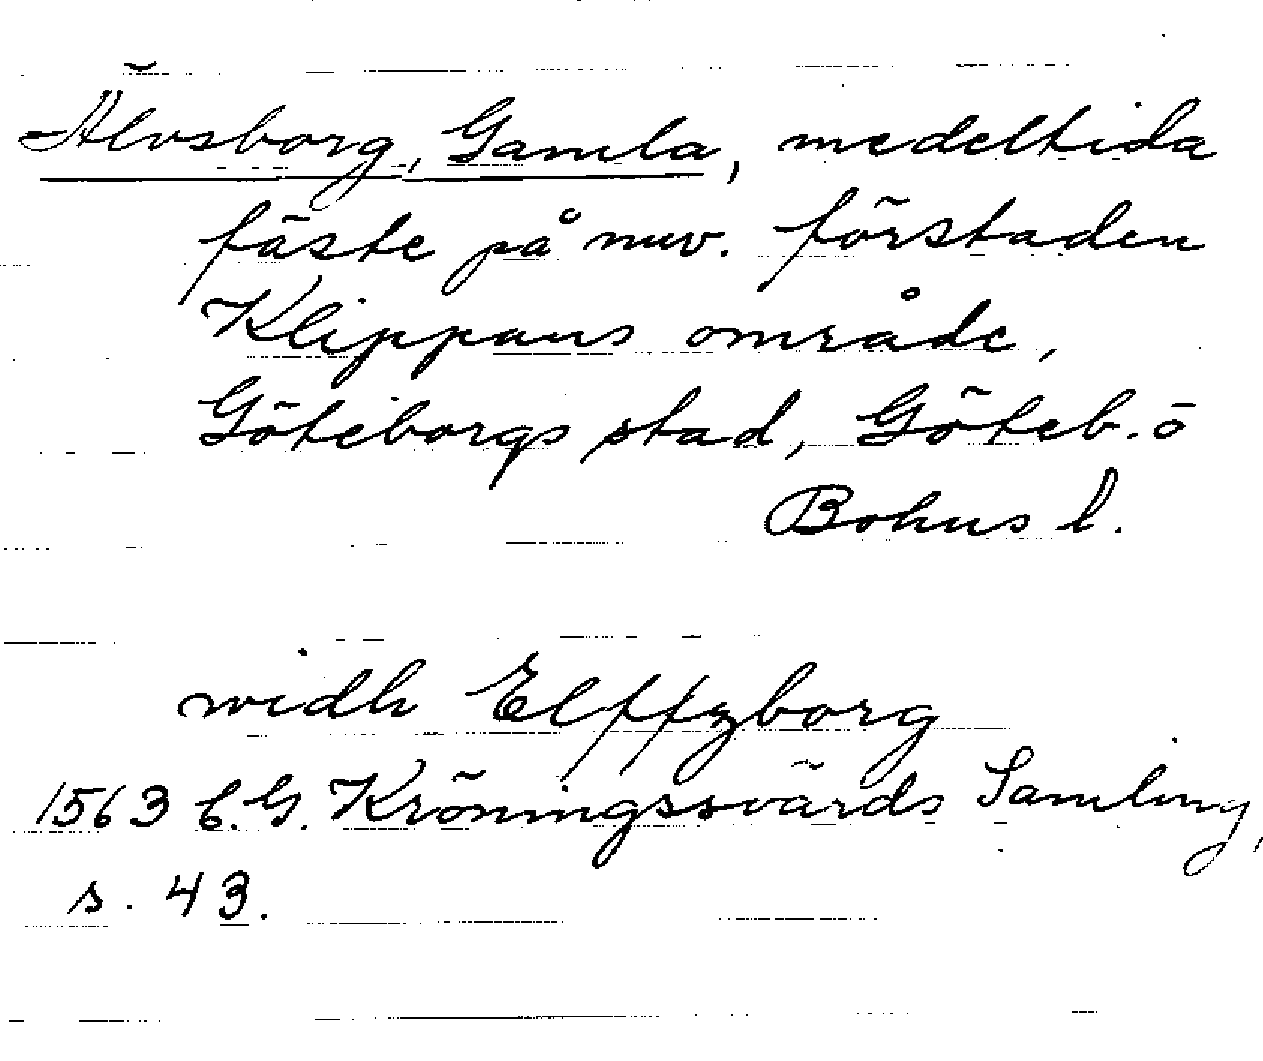 Älvsborg, Gamla, medeltida
fäste på nuv. förstaden
Klippans område,
Göteborgs stad, Göteb. o
Bohus l.
widh Elffzborg
1563 C. G. Kröningssvärds Samling,
s. 43.